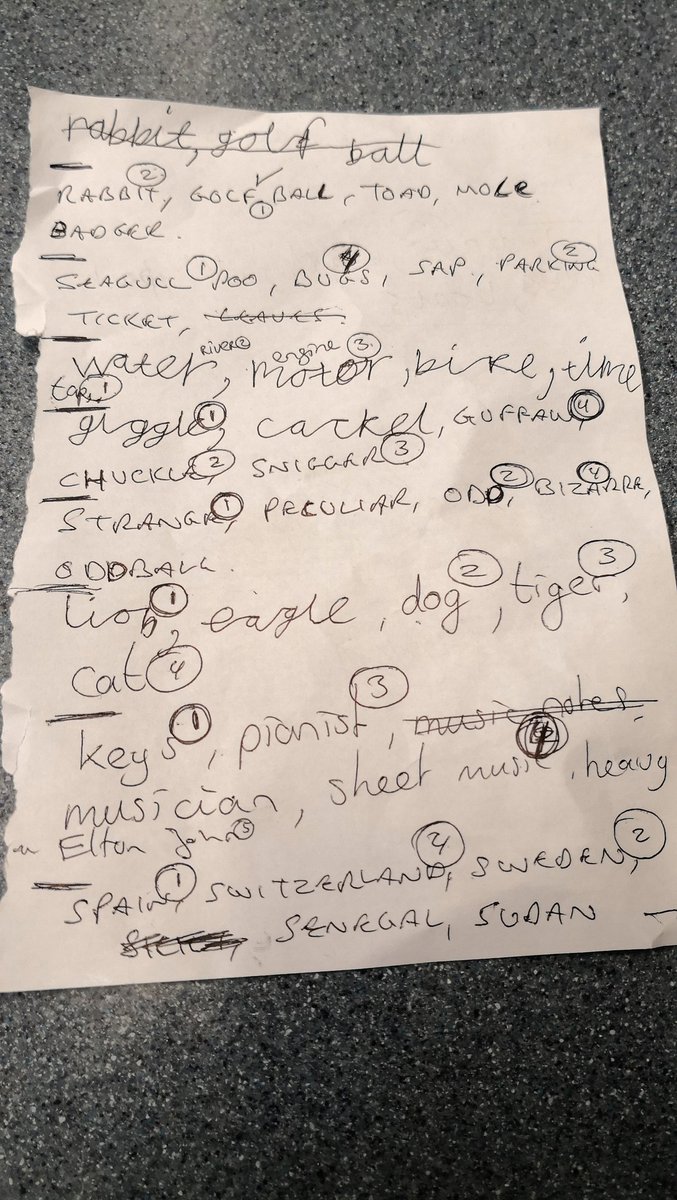 rabbit, golf ball
RABBIT, ② GOLF BALL, ① TOAD, MOLE
BADGER.
SEAGULL ① POO, BUGS, 4 SAP, PARKING ②
TICKET, LEAVES.
River② engine ③
water, motor, bike, time
tap, 1
giggle, ① cackel, GUFFAW, ④
CHUCKLE, ② SNIGGER ③
STRANGE, ① PECULIAR, ODD, ② BIZARRE, ④
ODDBALL.
lion, ① eagle, dog ②, tiger, ③
cat ④
keys ①, pianist ③, music notes,
musician, sheet music 4, heavy
Elton John ⑤
SPAIN, ① SWITZERLAND, ④ SWEDEN, ②
SENEGAL, SUDAN